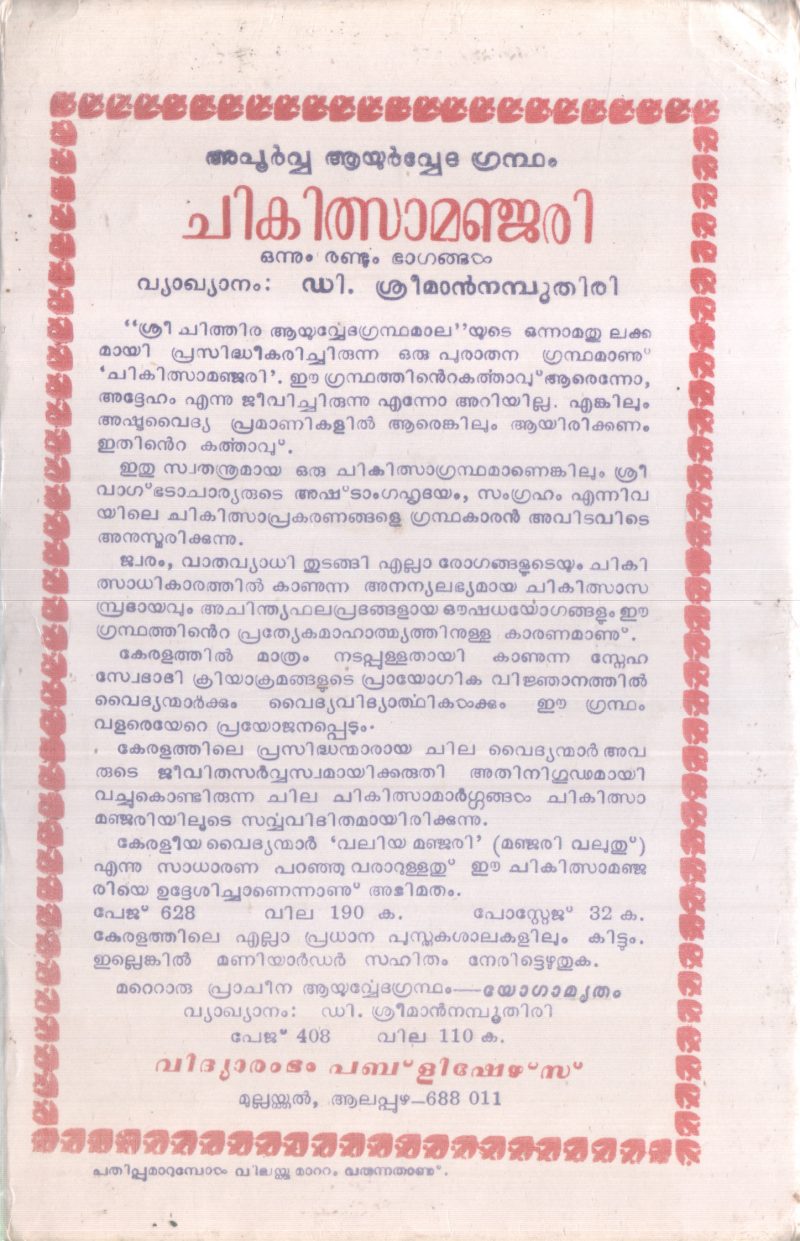 അപൂർവ്വ ആയുർവ്വേദ ഗ്രന്ഥം
ചികിത്സാമഞ്ജരി
ഒന്നും രണ്ടും ഭാഗങ്ങൾ
വ്യാഖ്യാനം: ഡി. ശ്രീമാൻനമ്പുതിരി
“ശ്രീ ചിത്തിര ആയുൎവ്വേദഗ്രന്ഥമാല”യുടെ ഒന്നാമതു ലക്ക
മായി പ്രസിദ്ധീകരിച്ചിരുന്ന ഒരു പുരാതന ഗ്രന്ഥമാണു്
‘ചികിത്സാമഞ്ജരി’. ഈ ഗ്രന്ഥത്തിൻെറകൎത്താവു് ആരെന്നോ,
അദ്ദേഹം എന്നു ജീവിച്ചിരുന്നു എന്നോ അറിയില്ല. എങ്കിലും
അഷ്ടവൈദ്യ പ്രമാണികളിൽ ആരെങ്കിലും ആയിരിക്കണം
ഇതിൻെറ കൎത്താവു്.
ഇതു സ്വതന്ത്രമായ ഒരു ചികിത്സാഗ്രന്ഥമാണെങ്കിലും ശ്രീ
വാഗ്ഭടാചാര്യരുടെ അഷ്ടാംഗഹൃദയം, സംഗ്രഹം എന്നിവ
യിലെ ചികിത്സാപ്രകരണങ്ങളെ ഗ്രന്ഥകാരൻ അവിടവിടെ
അനുസ്മരിക്കുന്നു.
ജ്വരം, വാതവ്യാധി തുടങ്ങി എല്ലാ രോഗങ്ങളുടെയും ചികി
ത്സാധികാരത്തിൽ കാണുന്ന അനന്യലഭ്യമായ ചികിത്സാസ
മ്പ്രദായവും അചിന്ത്യഫലപ്രദങ്ങളായ ഔഷധയോഗങ്ങളും ഈ
ഗ്രന്ഥത്തിൻെറ പ്രത്യേകമാഹാത്മ്യത്തിനുള്ള കാരണമാണു്.
കേരളത്തിൽ മാത്രം നടപ്പുള്ളതായി കാണുന്ന സ്നേഹ
സ്വേദാദി ക്രിയാക്രമങ്ങളുടെ പ്രായോഗിക വിജ്ഞാനത്തിൽ
വൈദ്യന്മാർക്കും വൈദ്യവിദ്യാൎത്ഥികൾക്കും ഈ ഗ്രന്ഥം
വളരെയേറെ പ്രയോജനപ്പെടും.
കേരളത്തിലെ പ്രസിദ്ധന്മാരായ ചില വൈദ്യന്മാർ അവ
രുടെ ജീവിതസർവ്വസ്വമായിക്കരുതി അതിനിഗൂഢമായി
വച്ചുകൊണ്ടിരുന്ന ചില ചികിത്സാമാർഗ്ഗങ്ങൾ ചികിത്സാ
മഞ്ജരിയിലൂടെ സൎവ്വവിദിതമായിരിക്കുന്നു.
കേരളീയ വൈദ്യന്മാർ ‘വലിയ മഞ്ജരി’ (മഞ്ജരി വലുതു്)
എന്നു സാധാരണ പറഞ്ഞു വരാറുള്ളതു് ഈ ചികിത്സാമഞ്ജ
രിയെ ഉദ്ദേശിച്ചാണെന്നാണു് അഭിമതം.
പേജ് 628 വില 190 ക. പോസ്റ്റേജ് 32 ക.
കേരളത്തിലെ എല്ലാ പ്രധാന പുസ്തകശാലകളിലും കിട്ടും.
ഇല്ലെങ്കിൽ മണിയാർഡർ സഹിതം നേരിട്ടെഴുതുക.
മറെറാരു പ്രാചീന ആയുൎവ്വേദഗ്രന്ഥം—യോഗാമൃതം
വ്യാഖ്യാനം: ഡി. ശ്രീമാൻനമ്പൂതിരി
പേജ് 408 വില 110 ക.
വിദ്യാരംഭം പബ്ളിഷേഴ്സ്
മുല്ലയ്ക്കൽ, ആലപ്പുഴ–688 011
പതിപ്പുമാറുമ്പോൾ വിലയ്ക്കു മാററം വരുന്നതാണു്.